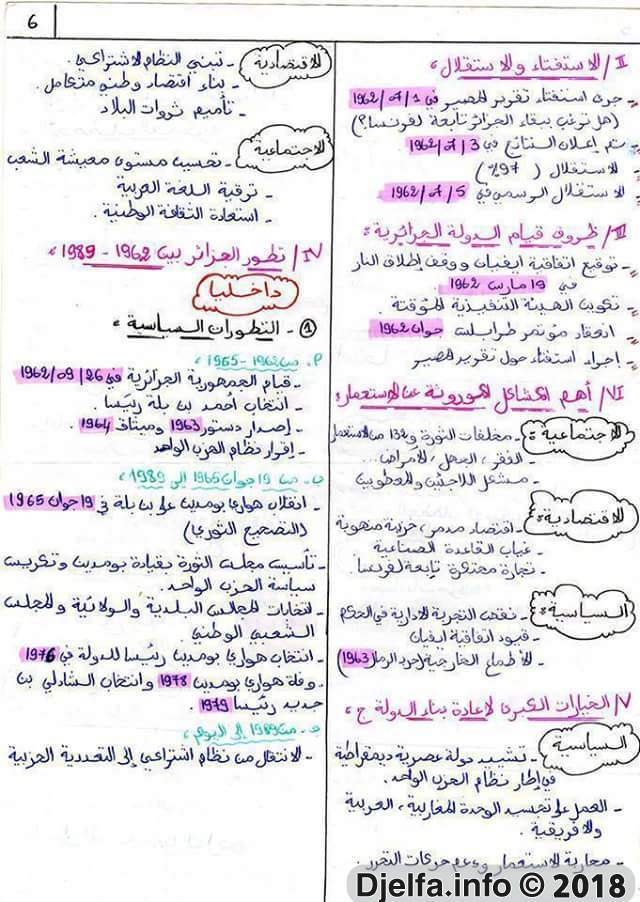 6
II/ الاستفتاء والاستقلال :
- جرى استفتاء تقرير المصير في 1/07/1962
(هل ترغب ببقاء الجزائر تابعة لفرنسا؟)
- يتم إعلان النتائج في 3/07/1962
- الاستقلال (97%)
- الاستقلال الرسمي في 5/07/1962
III/ ظروف قيام الدولة الجزائرية :
- توقيع اتفاقية ايفيان ووقف إطلاق النار
في 19 مارس 1962 .
- تكوين الهيئة التنفيذية المؤقتة .
- انعقاد مؤتمر طرابلس جوان 1962
- اجراء استفتاء حول تقرير المصير
VI/ أهم المشاكل الموروثة عن الاستعمار :
الاجتماعية :
- مخلفات الثورة و 132 من الاستعمار
- الفقر ، الجهل ، الأمراض...
- مشكل اللاجئين والمعطوبين
الاقتصادية :
- اقتصاد مدمر ، خزينة منهوبة
- غياب القاعدة الصناعية
- تجارة محتكرة تابعة لفرنسا .
السياسية :
- نقص التجربة الادارية في الحكم
- قيود اتفاقية ايفيان
- الأطماع الخارجية (حرب الرمال 1963)
V/ الخيارات الكبرى لإعادة بناء الدولة ج :
السياسية
- تشييد دولة عصرية ديمقراطية
في إطار نظام الحزب الواحد .
- العمل على تجسيد الوحدة المغاربية ، العربية
والافريقية .
- محاربة الاستعمار ودعم حركات التحرر .
الاقتصادية
- تبني النظام الاشتراكي .
- بناء اقتصاد وطني متكامل .
- تأميم ثروات البلاد
الاجتماعية
- تحسين مستوى معيشة الشعب
- ترقية اللغة العربية
- استعادة الثقافة الوطنية .
IV/ تطور الجزائر بين 1962 - 1989 :
داخليا
1 - التطورات السياسية :
أ. من 1962 - 1965 :
- قيام الجمهورية الجزائرية في 26/09/1962
- انتخاب أحمد بن بلة رئيسا .
- إصدار دستور 1963 وميثاق 1964 .
- إقرار نظام الحزب الواحد
ب- من 19 جوان 1965 إلى 1989 :
- انقلاب هواري بومدين على بن بلة في 19 جوان 1965
(التصحيح الثوري)
- تأسيس مجلس الثورة بقيادة بومدين وتكريس
سياسة الحزب الواحد .
- انتخابات المجالس البلدية والولائية والمجلس
الشعبي الوطني .
- انتخاب هواري بومدين رئيسا للدولة في 1976
- وفاة هواري بومدين 1978 وانتخاب الشاذلي بن
جديد رئيسا 1979 .
من 1989 إلى اليوم :
- الانتقال من نظام اشتراكي إلى التعددية الحزبية
Djelfa.info © 2018